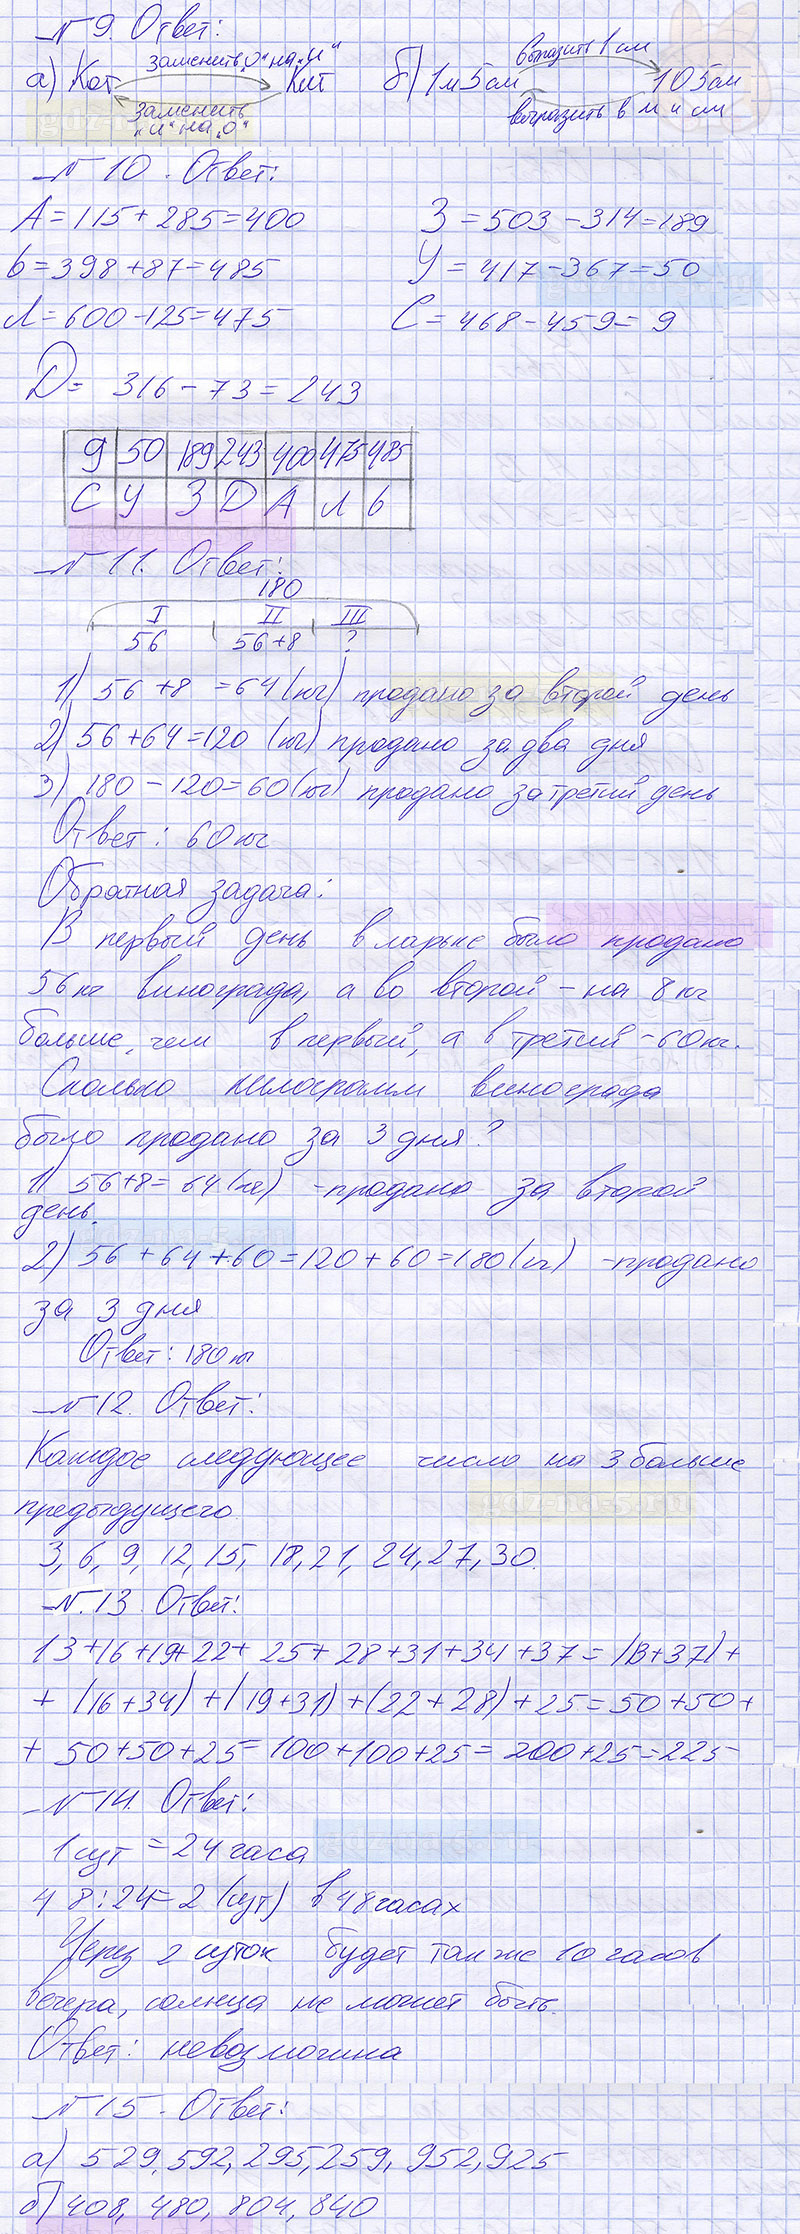 № 9. Ответ:
а) Кот заменить „о“ на „и“ Кит
заменить „и“ на „о“
б) 1м 5см выразить в см 105см
выразить в м и см
№ 10. Ответ:
А = 115 + 285 = 400 З = 503 - 314 = 189
Ь = 398 + 87 = 485 У = 417 - 367 = 50
Л = 600 - 125 = 475 С = 468 - 459 = 9
D = 316 - 73 = 243
9 50 189 243 400 475 485
С У З D А Л Ь
№ 11. Ответ:
180
I II III
56 56+8 ?
1) 56 + 8 = 64 (кг) продано за второй день
2) 56 + 64 = 120 (кг) продано за два дня
3) 180 - 120 = 60 (кг) продано за третий день
Ответ: 60 кг
Обратная задача:
В первый день в ларьке было продано
56 кг винограда, а во второй - на 8 кг
больше, чем в первый, а в третий - 60 кг.
Сколько килограмм винограда
было продано за 3 дня?
1) 56 + 8 = 64 (кг) - продано за второй
день.
2) 56 + 64 + 60 = 120 + 60 = 180 (кг) - продано
за 3 дня
Ответ: 180 кг
№ 12. Ответ:
Каждое следующее число на 3 больше
предыдущего.
gdz-na-5.ru
3, 6, 9, 12, 15, 18, 21, 24, 27, 30.
№ 13. Ответ:
13 + 16 + 19 + 22 + 25 + 28 + 31 + 34 + 37 = (13 + 37) +
+ (16 + 34) + (19 + 31) + (22 + 28) + 25 = 50 + 50 +
+ 50 + 50 + 25 = 100 + 100 + 25 = 200 + 25 = 225
№ 14. Ответ:
1 сут = 24 часа
48 : 24 = 2 (сут) в 48 часах
Через 2 суток будет также 10 часов
вечера, солнца не может быть.
Ответ: невозможна
№ 15. Ответ:
а) 529, 592, 295, 259, 952, 925
б) 408, 480, 804, 840